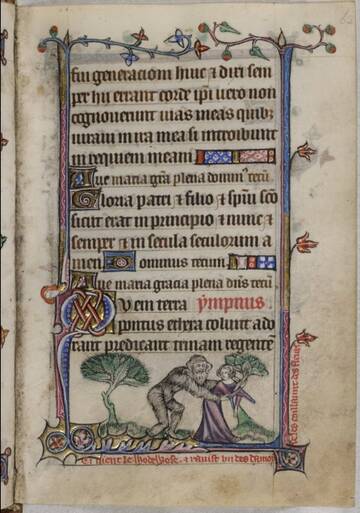 fui generacioni huic ⁊ dixi sem
per hii errant corde ip̄i uero non
cognouerunt uias meas quibȝ
iuraui in ira mea si introibunt
in requiem meam
Aue maria gr̄a plena dominꝰ tecū
Gloria patri ⁊ filio ⁊ sp̄ui sc̄o
sicut erat in principio ⁊ nunc ⁊
semper ⁊ in secula seculorum a
men Dominus tecum
Aue maria gracia plena dn̄s tecū
Quem terra ympnus
pontus ethera colunt ado
rant predicant trinam regentē
Et vient le Wodewose ⁊ rauist un des